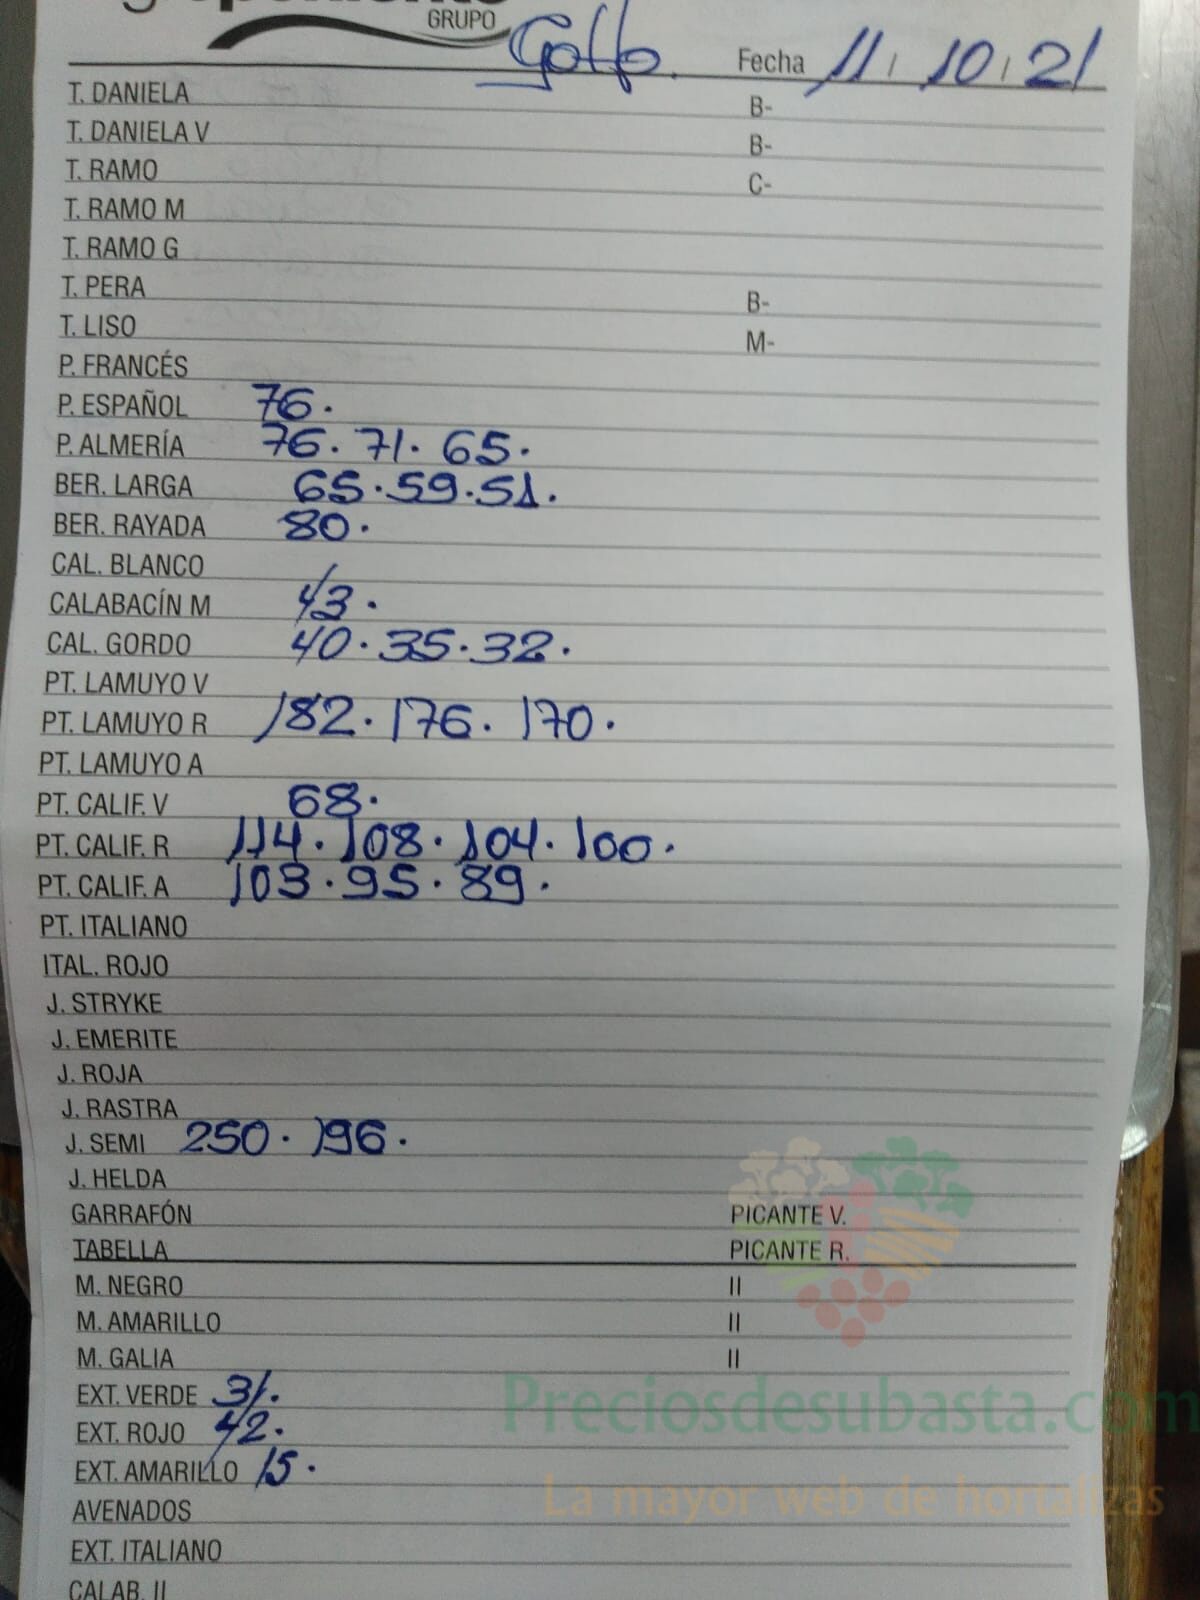 GRUPO
Golfo. Fecha 11, 10, 21
T. DANIELA B-
T. DANIELA V B-
T. RAMO C-
T. RAMO M
T. RAMO G
T. PERA B-
T. LISO M-
P. FRANCÉS
P. ESPAÑOL 76.
P. ALMERÍA 76. 71. 65.
BER. LARGA 65.59.51.
BER. RAYADA 80.
CAL. BLANCO
CALABACÍN M 43.
CAL. GORDO 40.35.32.
PT. LAMUYO V
PT. LAMUYO R 182.176.170.
PT. LAMUYO A
PT. CALIF. V 68.
PT. CALIF. R 114.108.104.100.
PT. CALIF. A 103.95.89.
PT. ITALIANO
ITAL. ROJO
J. STRYKE
J. EMERITE
J. ROJA
J. RASTRA
J. SEMI 250.196.
J. HELDA
GARRAFÓN PICANTE V.
TABELLA PICANTE R.
M. NEGRO II
M. AMARILLO II
M. GALIA II
EXT. VERDE 31.
EXT. ROJO 42.
EXT. AMARILLO 15.
AVENADOS
EXT. ITALIANO
CALAB. II
Preciosdesubasta.com
La mayor web de hortalizas